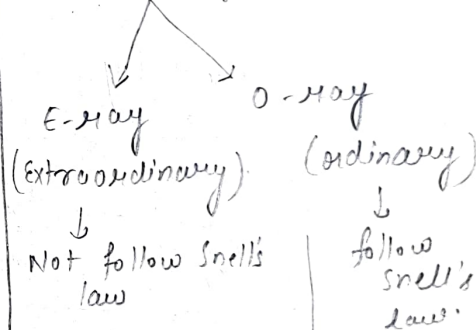 E-ray
(Extraordinary)
Not follow Snell's
law
O-ray
(ordinary)
follow
Snell's
law.